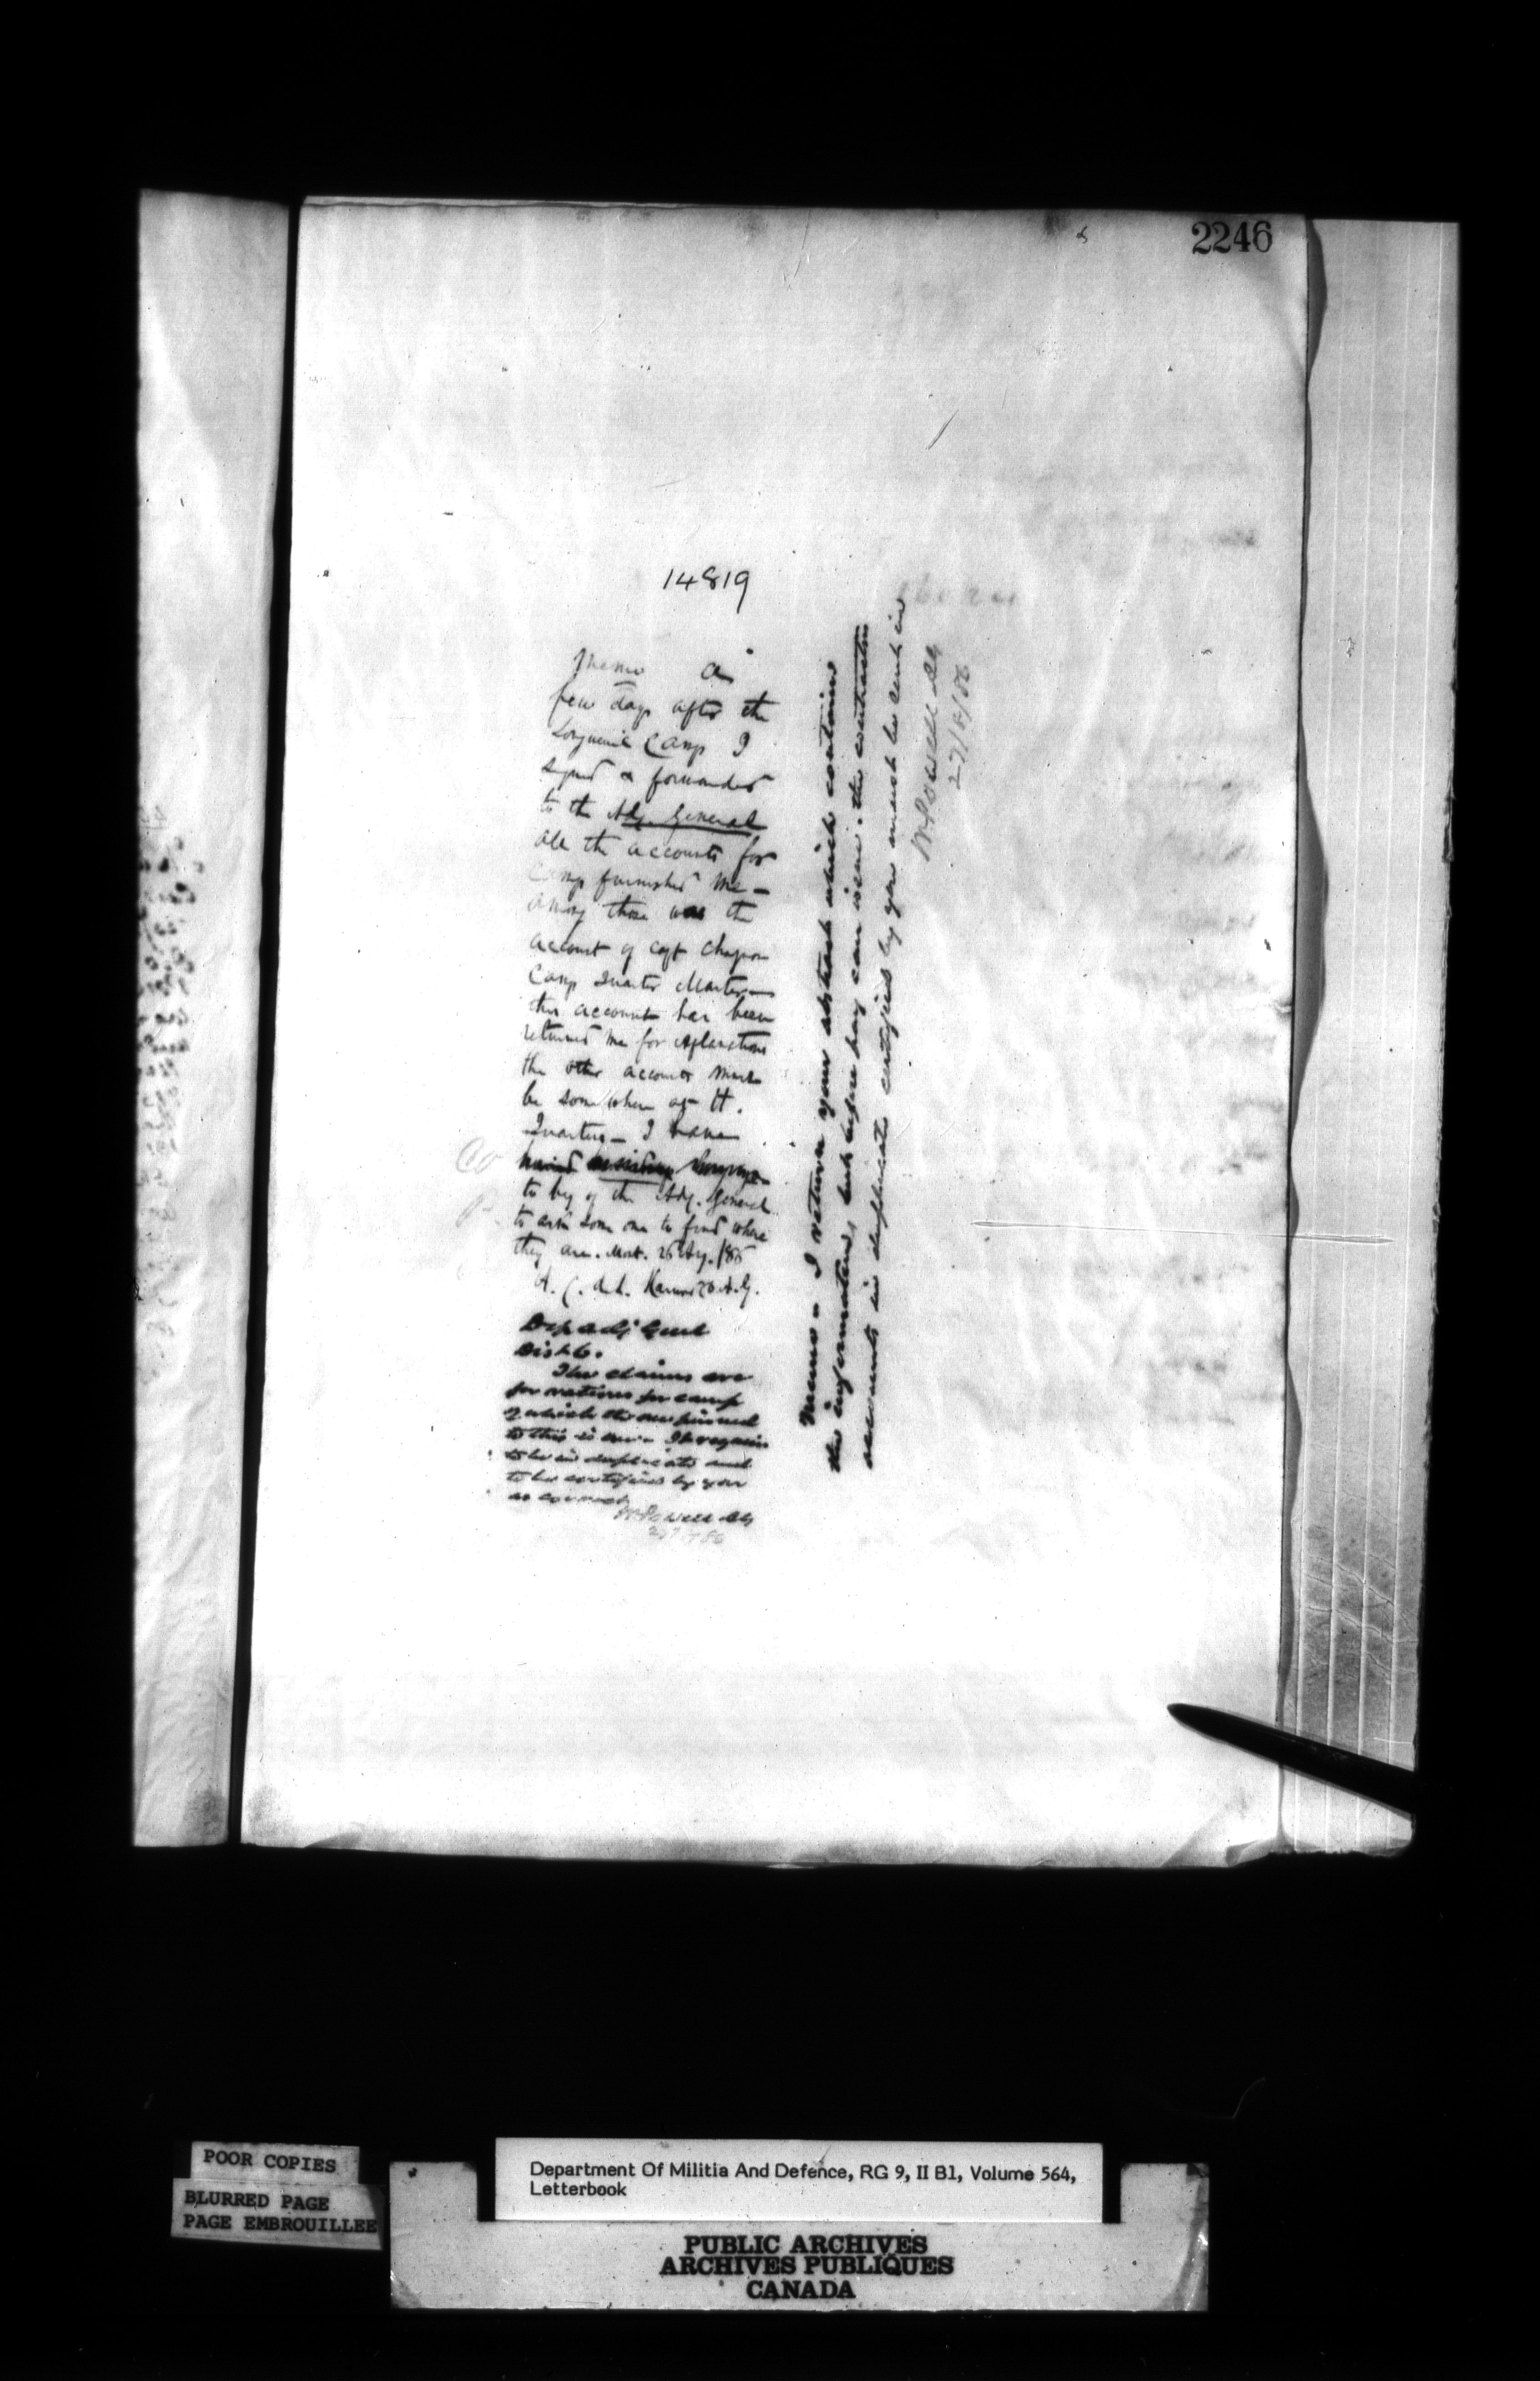 2246
14819
Memo A
few days after the
Longueuil Camp I
signed & forwarded
to the Adj. General
all the accounts for
Camp furnished me —
among those was the
account of Capt
Camp Quarter Master —
this account has been
returned me for explanations
the other accounts must
be somewhere at H.
Quarters — I have
to beg of the Adj. General
to ask some one to find where
they are. Mont. 26 Ag. /86
A. C. de L. D.A.G.
Dep Adj Genl
Dist 6.
The claims are
for rations for camp
of which the one pinned
to this is one. It requires
to be in duplicate and
to be certified by you
as correct
W Powell AG
27 86
Memo — I return your abstract which contains
the information, but before pay can issue the contractors
accounts in duplicate certified by you must be sent in
W Powell AG
27/8/86
POOR COPIES
BLURRED PAGE
PAGE EMBROUILLEE
Department Of Militia And Defence, RG 9, II B1, Volume 564,
Letterbook
PUBLIC ARCHIVES
ARCHIVES PUBLIQUES
CANADA